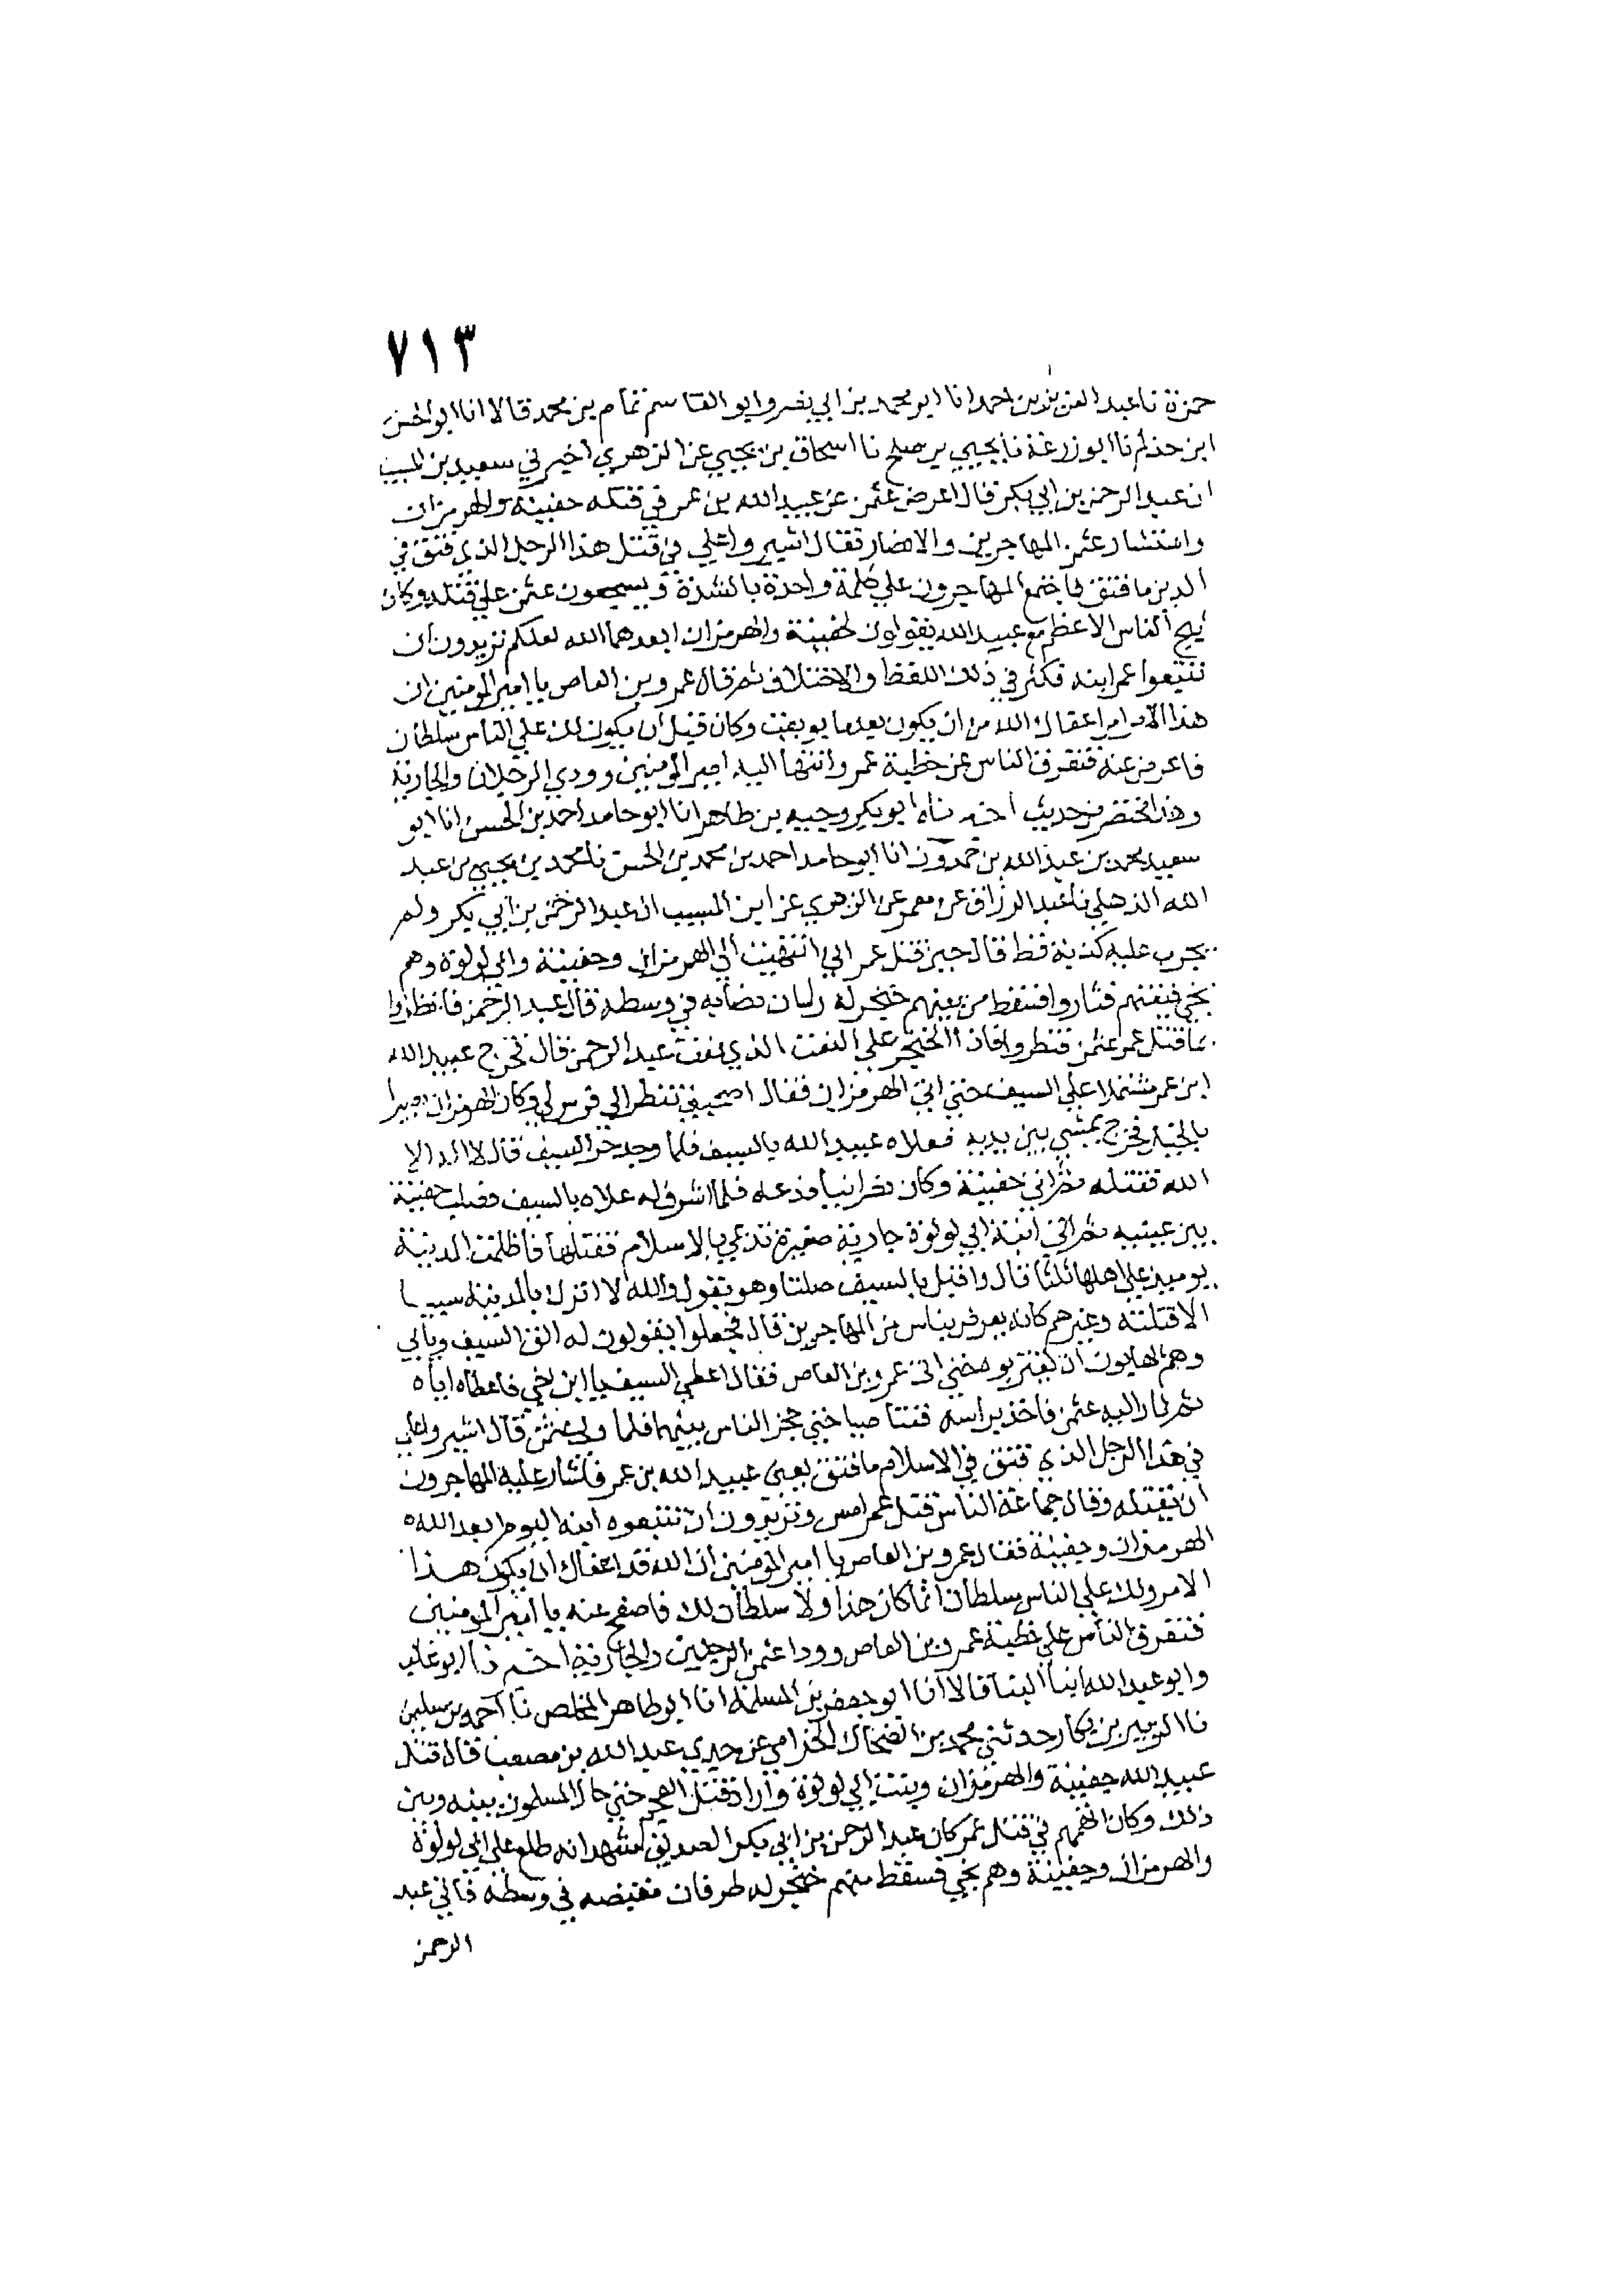 ٧١٣
حمزة نا عبد العزيز بن احمد انا ابو محمد بن ابي نصر وابو القاسم تمام بن محمد قالا انا ابو الحسن
ابن حذلم نا ابو زرعة نا يحيى بن صلح نا اسحاق بن يحيى عن الزهري اخبرني سعيد بن المسيب
ان عبد الرحمن بن ابي بكر قال اعرض عثمن عن عبيد الله بن عمر في قتله جفينة والهرمزان
واستشار عثمن المهاجرين والانصار فقال اشيروا علي في قتل هذا الرجل الذي فتق في
الدين ما فتق فاجتمع المهاجرون على كلمة واحدة بالشدة ويشجعون عثمن على قتله وكان
الناس الاعظم مع عبيد الله يقولون لجفينة والهرمزان ابعدهما الله لعلكم تريدون ان
تتبعوا عمر ابنه فكثر في ذلك اللغط والاختلاف ثم قال عمرو بن العاص يا امير المومنين ان
هذا الامر اعفاك الله من ان يكون بعد ما بويعت وكان قبل ان يكون لك على الناس سلطان
فاعرض عنه فتفرق الناس عن خطبة عمرو وانتها اليه امير المومنين وودي الرجلان والجارية
وهذا مختصر من حديث اخبرناه ابو بكر وجيه بن طاهر انا ابو حامد احمد بن الحسن انا ابو
سعيد محمد بن عبد الله بن حمدون انا ابو حامد احمد بن محمد بن الحسن نا محمد بن يحيى بن عبد
الله الذهلي نا عبد الرزاق عن معمر عن الزهري عن ابن المسيب ان عبد الرحمن بن ابي بكر ولم
يجرب عليه كذبة قط قال حين قتل عمر اني انتهيت الى الهرمزان وجفينة وابي لولوة وهم
نجي فبغتهم فثاروا فسقط من بينهم خنجر له راسان نصابه في وسطه قال عبد الرحمن فانظروا
بما قتل عمر عثمن فنظروا فاذا الخنجر على النعت الذي نعت عبد الرحمن قال فخرج عبيد الله
ابن عمر مشتملا على السيف حتى اتى الهرمزان فقال اصحبني تنظر الى فرس لي وكان الهرمزان بصيرا
بالخيل فخرج يمشي بين يديه فعلاه عبيد الله بالسيف فلما وجد حر السيف قال لا اله الا
الله فقتله ثم اتى جفينة وكان نصرانيا فدعاه فلما اشرف له علاه بالسيف فصلب جفينة
بين عينيه ثم اتى ابنة ابي لولوة جارية صغيرة تدعي بالاسلام فقتلها فاظلمت المدينة
يوميذ على اهلها ثلثا قال واقبل بالسيف صلتا وهو يقول والله لا اترك بالمدينة سبيا
الا قتلته وغيرهم كانه يعرض بناس من المهاجرين قال فجعلوا يقولون له الق السيف ويابي
وهم يهابون ان يقتربوا حتى اتى عمرو بن العاص فقال اعطي السيف يا ابن اخي فاعطاه اياه
ثم ثار اليه عثمن فاخذ براسه فتناصبا حتى حجز الناس بينهما فلما ولي عثمن قال اشيروا علي
في هذا الرجل الذي فتق في الاسلام ما فتق يعني عبيد الله بن عمر فاشار عليه المهاجرون
ان تقتله وقال جماعة الناس قتل عمر امس وتريدون ان تتبعوه ابنه اليوم ابعد الله
الهرمزان وجفينة فقال عمرو بن العاص يا امير المومنين ان الله قد اعفاك ان يكون هذا
الامر ولك على الناس سلطان انما كان هذا ولا سلطان لك فاصفح عنه يا امير المومنين
فتفرق الناس على خطبة عمرو بن العاص وودا عثمن الرجلين والجارية اخبرنا ابو غالب
وابو عبد الله ابنا البنا قالا انا ابو جعفر بن المسلمة انا ابو طاهر المخلص نا احمد بن سليمن
نا الزبير بن بكار حدثني محمد بن الضحاك الحزامي عن جدي عبد الله بن مصعب قال قتل
عبيد الله جفينة والهرمزان وبنت ابي لولوة واراد قتل العجم حتى حال المسلمون بينه وبين
ذلك وكان اتهمهم في قتل عمر كان عبد الرحمن بن ابي بكر الصديق شهد انه طلع على ابي لولوة
والهرمزان وجفينة وهم نجي فسقط منهم خنجر له طرفان مقبضه في وسطه فاتي عبد
الرحمن